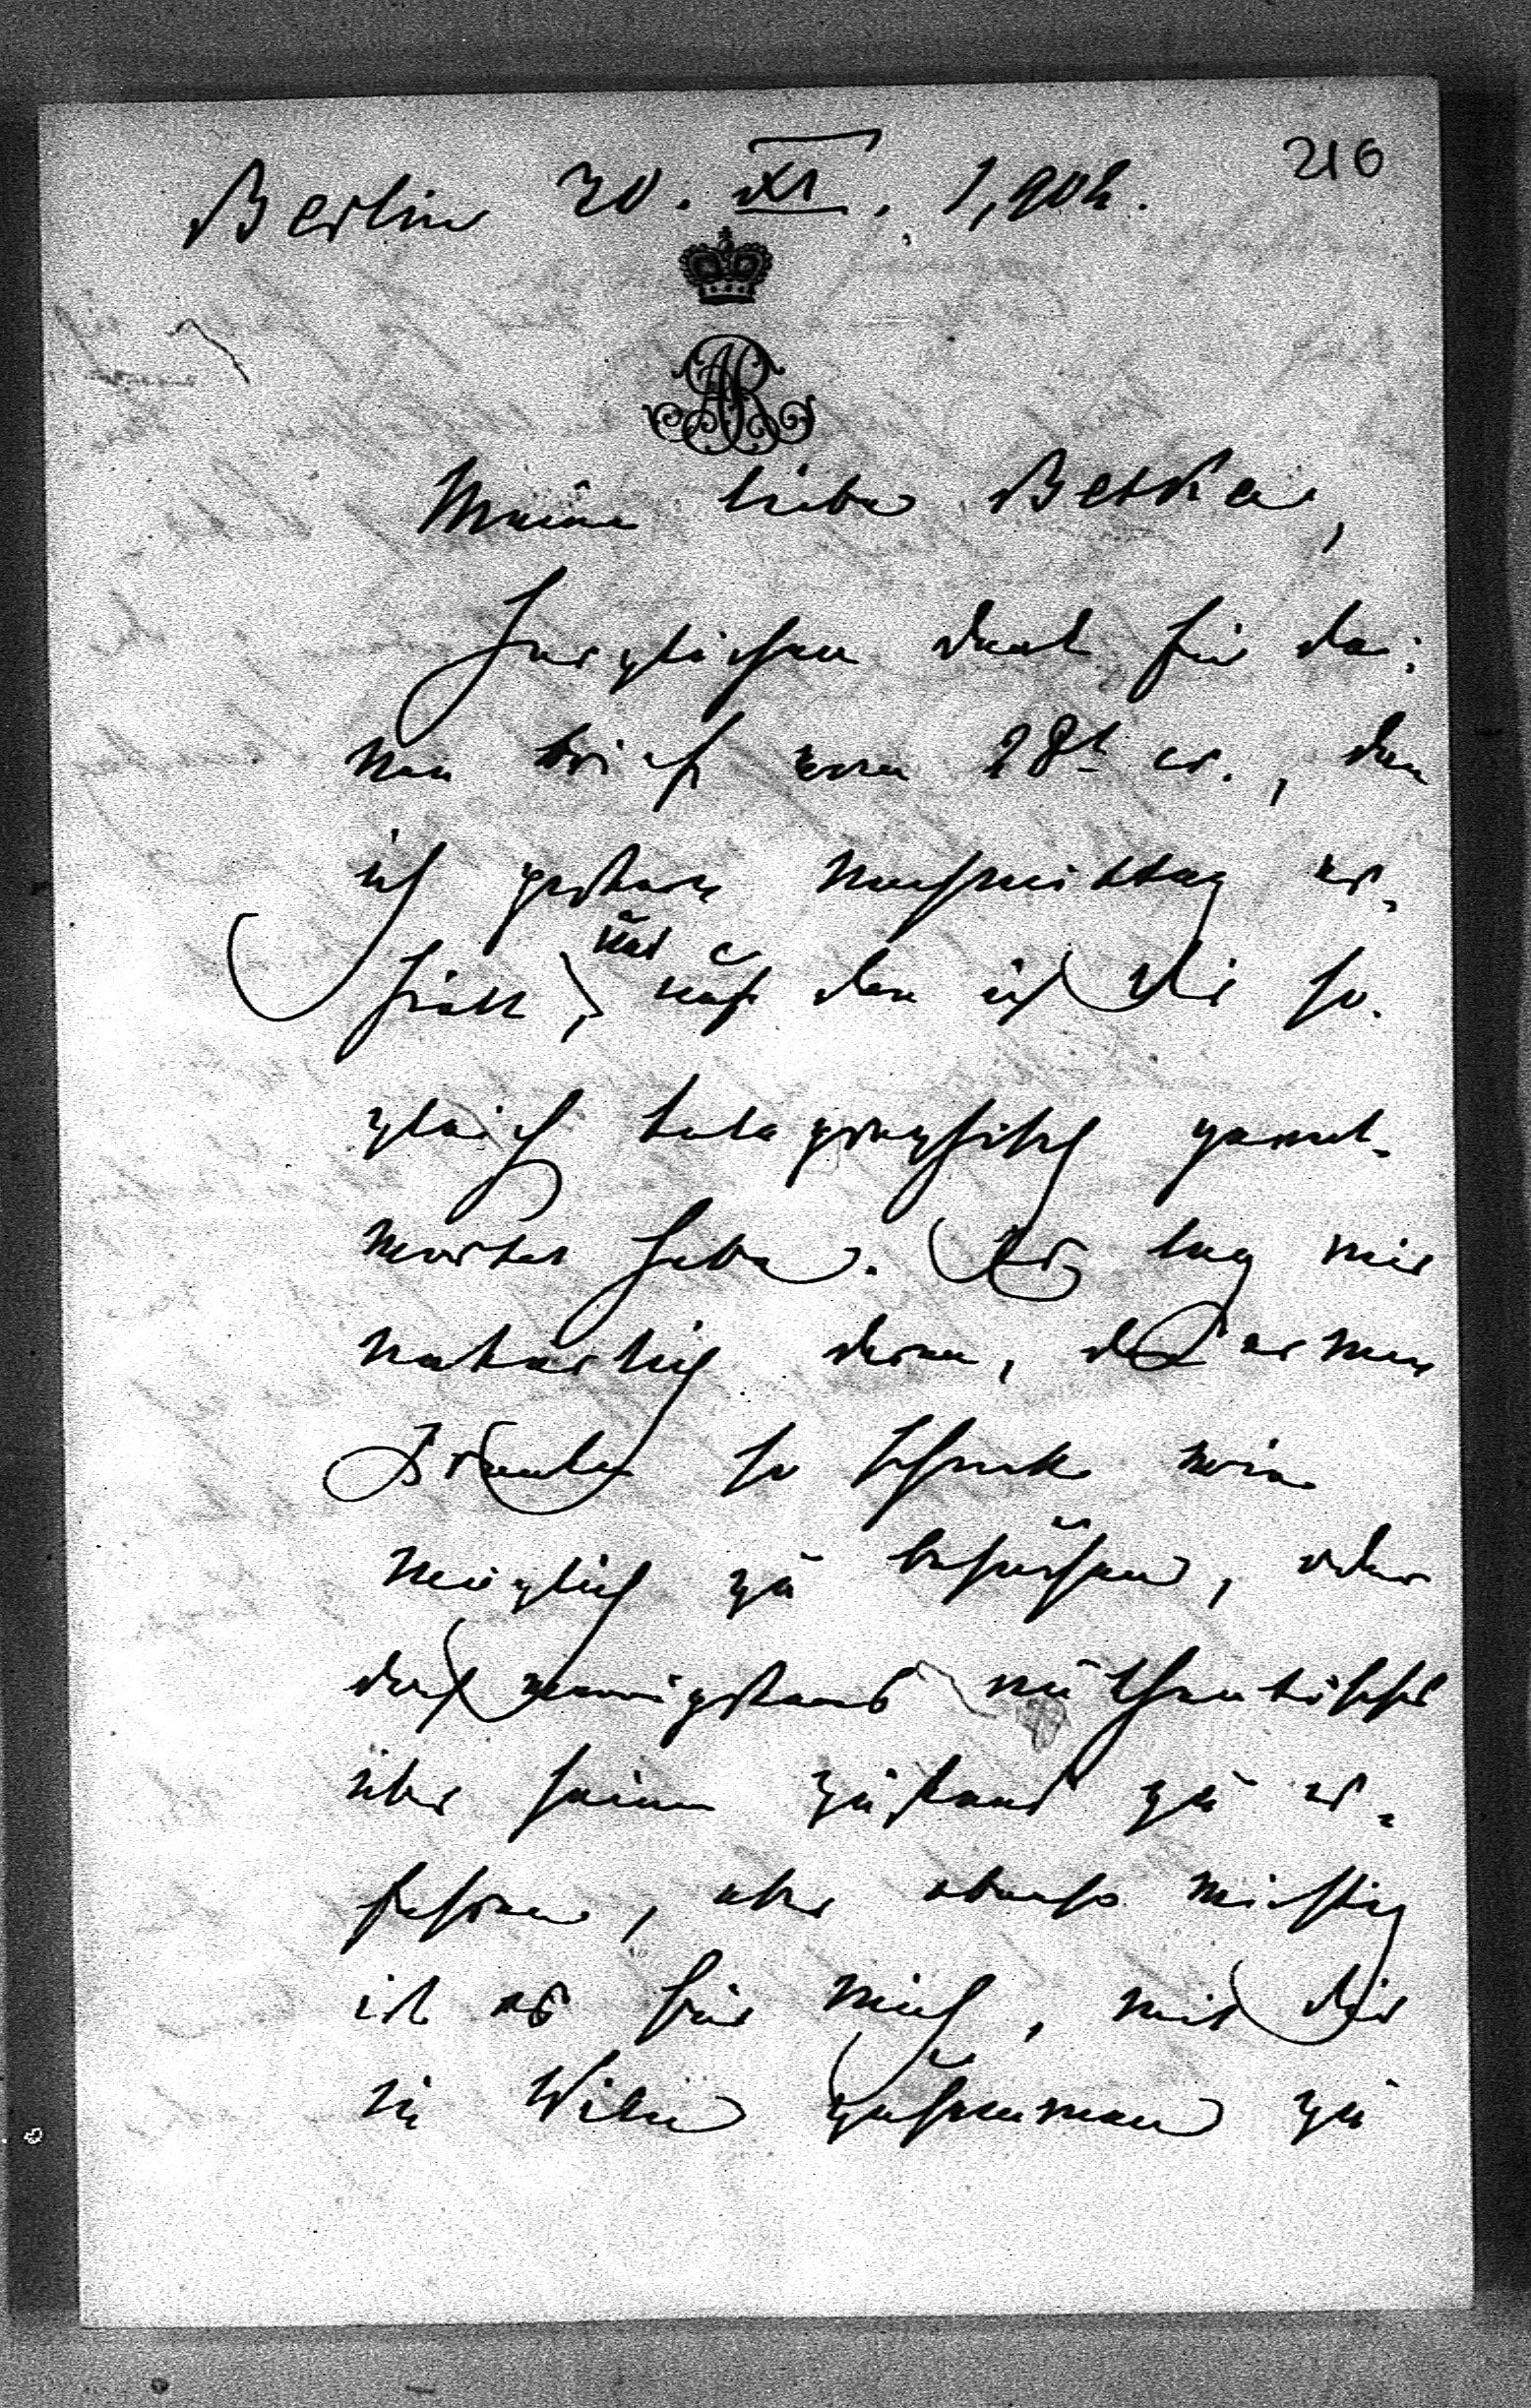 216
Berlin 30. XI. 1,902.
AR
Meine liebe Betka,
Herzlichen Dank für Dei-
nen Brief vom 28t cr., den
ich gestern Nachmittag er-
hielt, und auf den ich Dir so-
gleich telegraphisch geant-
wortet habe. Es lag mir
natürlich daran, den armen
so schnell wie
möglich zu besuchen, oder
doch wenigstens authentisches
über seinen Zustand zu er-
fahren, aber ebenso wichtig
ist es für mich, mit Dir
in Wien zusammen zu